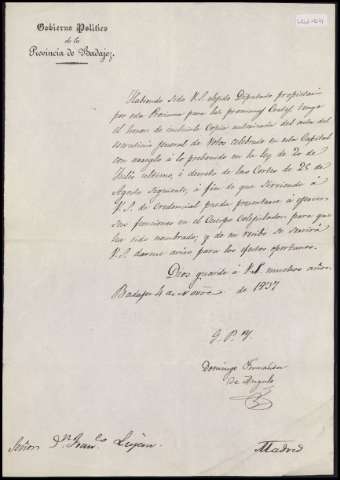 Gobierno Político
de la
Provincia de Badajoz.
Habiendo sido V.S. elegido Diputado propietario
por esta Provincia para las procsimas Cortes, tengo
el honor de incluirle Copia autorizada del acta del
escrutinio general de Votos celebrado en esta Capital
con arreglo á lo prebenido en la ley de 20 de
Julio ultimo, i decreto de las Cortes de 25 de
Agosto siguiente, á fin de que sirviendo á
V.S. de Credencial pueda presentarse á ejercer
sus funciones en el Cuerpo Colegislador para que
ha sido nombrado; y de su recibo se servirá
V.S. darme aviso para los efectos oportunos.
Dios guarde á V.S. muchos años.
Badajoz 4 de Novre. de 1837
G. P. Y.
Domingo
de Angulo
Señor Dn. Franco. Luján.
Madrid